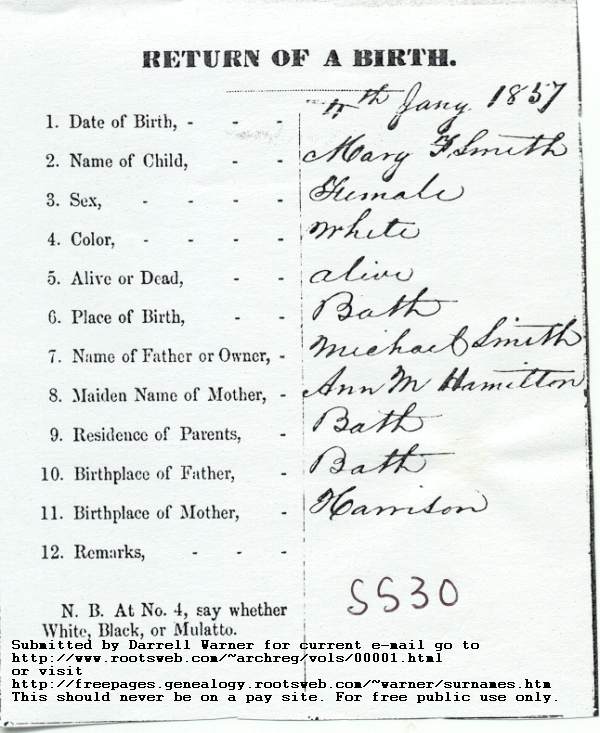 RETURN OF A BIRTH.
1. Date of Birth, - - - 4th Jany 1857
2. Name of Child, - - Mary F Smith
3. Sex, - - - - Female
4. Color, - - - - White
5. Alive or Dead, - - alive
6. Place of Birth, - - Bath
7. Name of Father or Owner, - Michael Smith
8. Maiden Name of Mother, - Ann M Hamilton
9. Residence of Parents, - Bath
10. Birthplace of Father, - Bath
11. Birthplace of Mother, - Harrison
12. Remarks, - - -
SS30
N. B. At No. 4, say whether
White, Black, or Mulatto.
Submitted by Darrell Warner for current e-mail go to
http://www.rootsweb.com/~archreg/vols/00001.html
or visit
http://freepages.genealogy.rootsweb.com/~warner/surnames.htm
This should never be on a pay site. For free public use only.